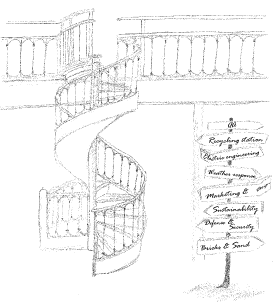 Recycling station
Electric engineering
Weather response
Marketing &
Sustainability
Defense &
Security
Bricks & Sand